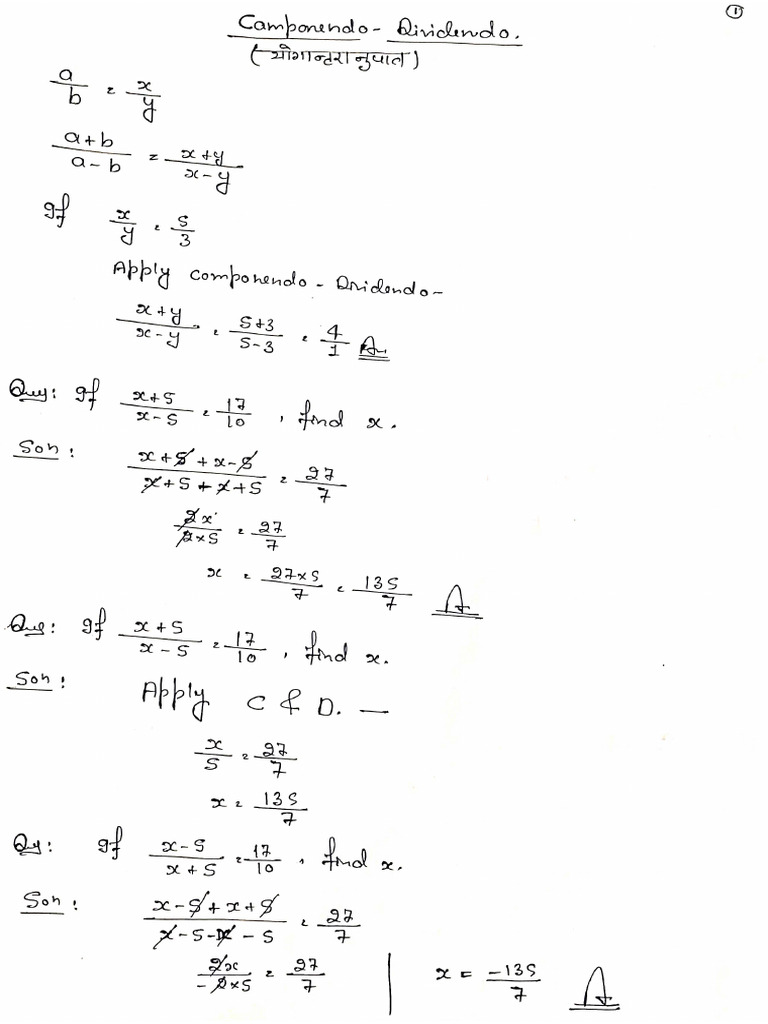 ①
Componendo - Dividendo.
(योगान्तरानुपात)
a/b = x/y
(a+b)/(a-b) = (x+y)/(x-y)
If x/y = 5/3
Apply componendo - Dividendo -
(x+y)/(x-y) = (5+3)/(5-3) = 4/1 A
Ques: If (x+5)/(x-5) = 17/10, find x.
Son:
(x+5+x-5)/(x+5-x+5) = 27/7
2x/(2×5) = 27/7
x = (27×5)/7 = 135/7 A
Ques: If (x+5)/(x-5) = 17/10, find x.
Son: Apply C & D. —
x/5 = 27/7
x = 135/7
Qus: If (x-5)/(x+5) = 17/10, find x.
Son: (x-5+x+5)/(x-5-x-5) = 27/7
2x/(-2×5) = 27/7 | x = -135/7 A